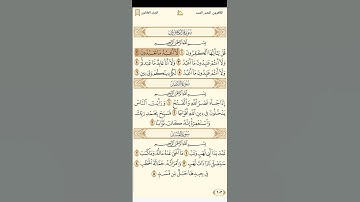 الكافرون النصر المسد
سورة الكافرون
بسم الله الرحمن الرحيم
قل يـأيها الكـفرون ١ لا أعبد ما تعبدون ٢
ولا أنتم عـبدون ما أعبد ٣ ولا أنا عابد ما عبدتم ٤
ولا أنتم عـبدون ما أعبد ٥ لكم دينكم ولي دين ٦
سورة النصر
بسم الله الرحمن الرحيم
إذا جاء نصر الله والفتح ١ ورأيت الناس
يدخلون في دين الله أفواجا ٢ فسبح بحمد ربك
واستغفره إنه كان توابا ٣
سورة المسد
بسم الله الرحمن الرحيم
تبت يدا أبي لهب وتب ١ ما أغنى عنه ماله وما كسب ٢
سيصلى نارا ذات لهب ٣ وامرأته حمالة الحطب ٤
في جيدها حبل من مسد ٥
٦٠٣